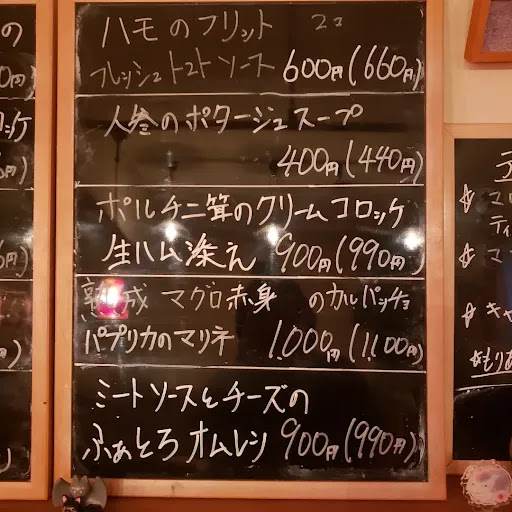 ハモのフリット 2コ
フレッシュトマトソース 600円(660円)
人参のポタージュスープ
400円(440円)
ポルチーニ茸のクリームコロッケ
生ハム添え 900円(990円)
熟成 マグロ赤身 のカルパッチョ
パプリカのマリネ 1.000円(1.100円)
ミートソースとチーズの
ふぁとろオムレツ 900円(990円)